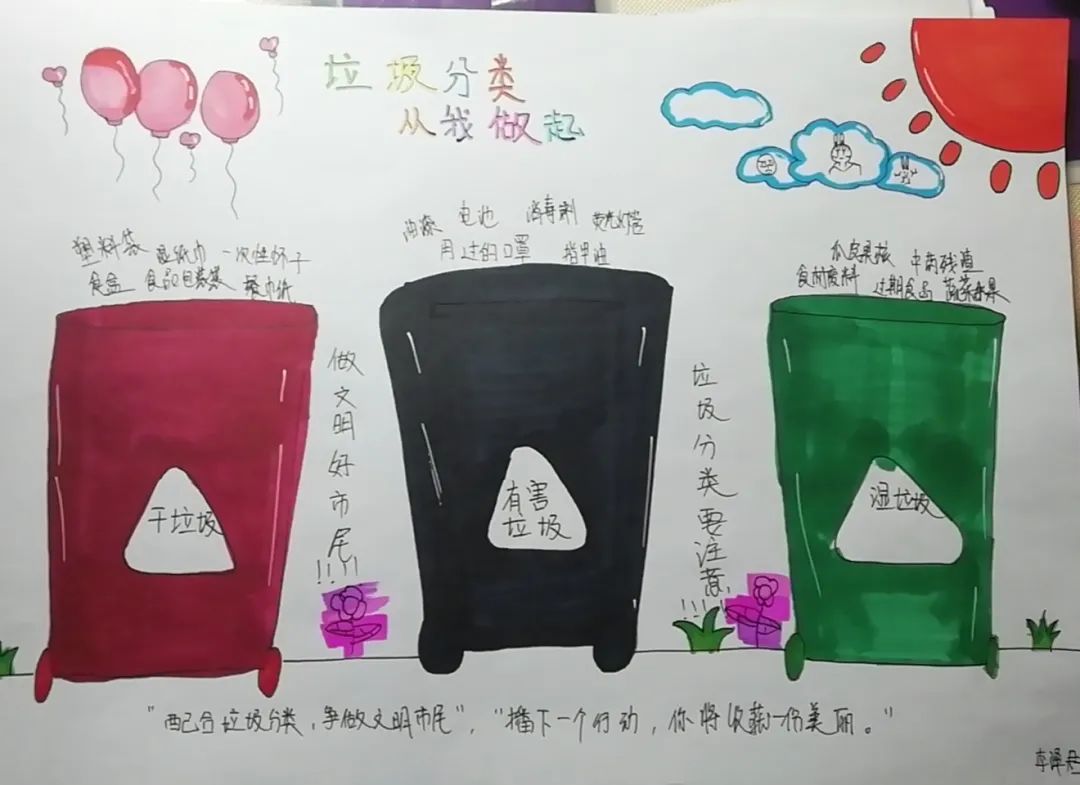 垃圾分类
从我做起
塑料袋 湿纸巾 一次性杯子
食盒 食品包装袋 餐巾纸
油漆 电池 消毒剂 荧光灯管
用过的口罩 指甲油
瓜皮果核 中药残渣
食材废料 过期食品 蔬菜水果
干垃圾
做文明好市民!!!!
有害
垃圾
垃圾分类要注意!!!!
湿垃圾
"配合垃圾分类，争做文明市民"，"播下一个行动，你将收获一份美丽。"